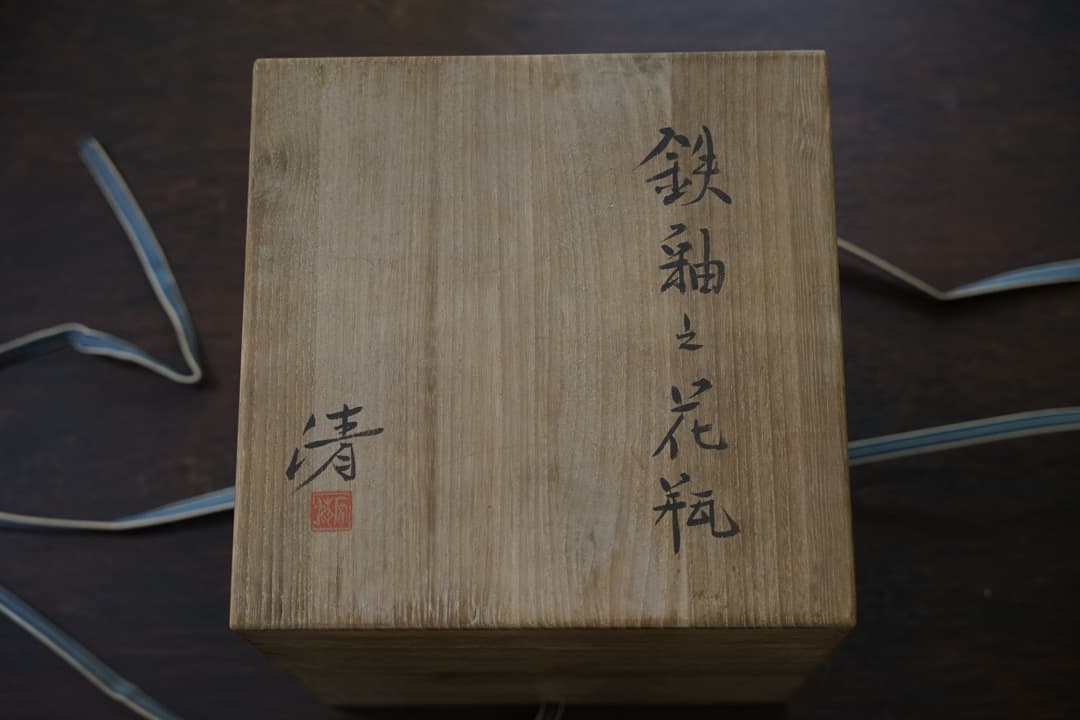 鉄釉之花瓶
清